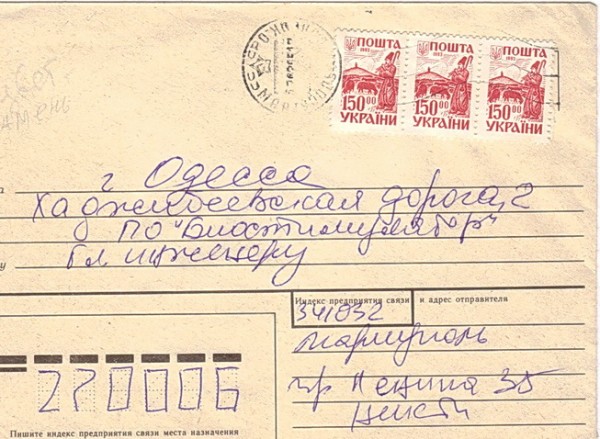 ПОШТА ПОШТА ПОШТА
1993 1993 1993
150.00 150.00 150.00
УКРАЇНИ УКРАЇНИ УКРАЇНИ
г Одесса
Хаджибеевская дорога, 2
ПО "Биостимулятор"
гл. инженеру
Индекс предприятия связи и адрес отправителя
341032
Мариуполь
пр Ленина 35
270006
Пишите индекс предприятия связи места назначения